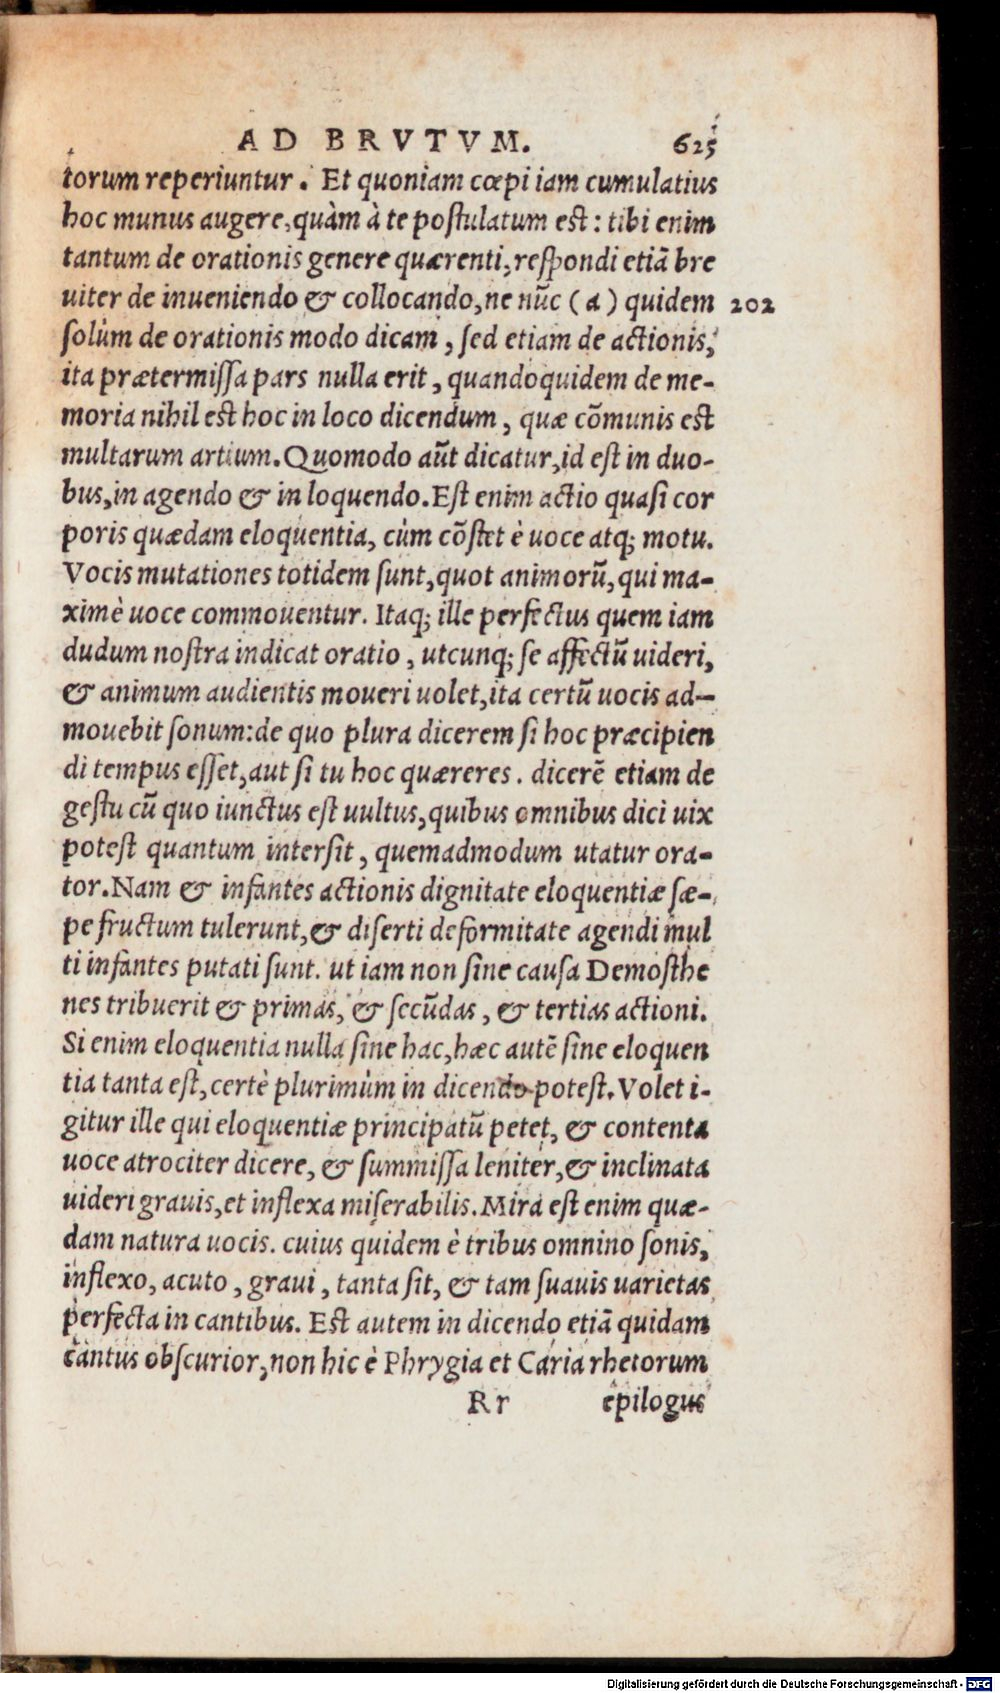 AD BRVTVM. 625
torum reperiuntur. Et quoniam cœpi iam cumulatius
hoc munus augere, quàm à te postulatum est: tibi enim
tantum de orationis genere quærenti, respondi etiã bre
uiter de inueniendo & collocando, ne nũc (a) quidem 202
solùm de orationis modo dicam, sed etiam de actionis,
ita prætermissa pars nulla erit, quandoquidem de me-
moria nihil est hoc in loco dicendum, quæ cõmunis est
multarum artium. Quomodo aũt dicatur, id est in duo-
bus, in agendo & in loquendo. Est enim actio quasi cor
poris quædam eloquentia, cùm cõstet è uoce atq; motu.
Vocis mutationes totidem sunt, quot animorũ, qui ma-
ximè uoce commouentur. Itaq; ille perfectus quem iam
dudum nostra indicat oratio, utcunq; se affectũ uideri,
& animum audientis moueri uolet, ita certũ uocis ad-
mouebit sonum: de quo plura dicerem si hoc præcipien
di tempus esset, aut si tu hoc quæreres. dicerẽ etiam de
gestu cũ quo iunctus est uultus, quibus omnibus dici uix
potest quantum intersit, quemadmodum utatur ora-
tor. Nam & infantes actionis dignitate eloquentiæ sæ-
pe fructum tulerunt, & diserti deformitate agendi mul
ti infantes putati sunt. ut iam non sine causa Demosthe
nes tribuerit & primas, & secũdas, & tertias actioni.
Si enim eloquentia nulla sine hac, hæc autẽ sine eloquen
tia tanta est, certè plurimùm in dicendo potest. Volet i-
gitur ille qui eloquentiæ principatũ petet, & contenta
uoce atrociter dicere, & summissa leniter, & inclinata
uideri grauis, et inflexa miserabilis. Mira est enim quæ-
dam natura uocis. cuius quidem è tribus omnino sonis,
inflexo, acuto, graui, tanta sit, & tam suauis uarietas
perfecta in cantibus. Est autem in dicendo etiã quidam
cantus obscurior, non hic è Phrygia et Caria rhetorum
Rr epilogus
Digitalisierung gefördert durch die Deutsche Forschungsgemeinschaft - DFG